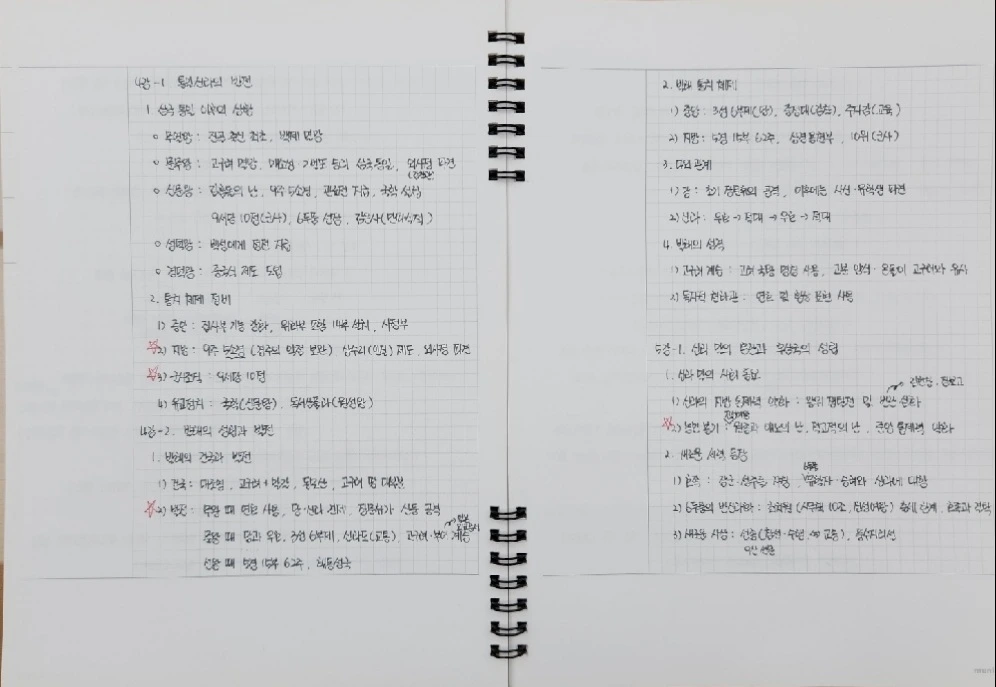 4강-1 통일신라의 발전
1. 삼국 통일 이후의 상황
○ 무열왕 : 진골 출신 최초, 백제 멸망
○ 문무왕 : 고구려 멸망, 매소성·기벌포 전투 삼국통일, 외사정 파견
○ 신문왕 : 김흠돌의 난, 9주 5소경, 관료전 지급, 국학 설립
9서당 10정(군사), 6두품 선발, 감은사
○ 성덕왕 : 백성에게 정전 지급
○ 경덕왕 : 중국식 제도 도입
2. 통치 체제 정비
1) 중앙 : 집사부 기능 강화, 위화부 포함 14부 설치, 사정부
2) 지방 : 9주 5소경 (경주의 약점 보완) 상수리(인질) 제도, 외사정 파견
3) 군사조직 : 9서당 10정
4) 유교정치 : 국학(신문왕), 독서삼품과(원성왕)
4강-2. 발해의 성립과 발전
1. 발해의 건국과 발전
1) 건국 : 대조영, 고구려 + 말갈, 동모산, 고구려 땅 대부분
2) 발전 : 무왕 때 연호 사용, 당·신라 견제, 장문휴가 산둥 공격
문왕 때 당과 우호, 3성 6부제, 신라도(교통), 고구려·부여 계승
일본
선왕 때 5경 15부 62주, 해동성국
2. 발해 통치 체제
1) 중앙 : 3성 6부제(당), 중정대(감찰), 주자감(교육)
2) 지방 : 5경 15부 62주, 10위(군사)
3. 대외 관계
1) 당 : 초기 장문휴의 공격, 이후에는 사신·유학생 파견
2) 신라 : 우호 → 적대 → 우호 → 적대
4. 발해의 성격
1) 고구려 계승 : 고려 국왕 명칭 사용, 고분 양식·온돌이 고구려와 유사
2) 독자적 천하관 : 연호 및 황상 표현 사용
5강-1. 신라 말의 혼란과 후삼국의 성립
1. 신라 말의 사회 동요
1) 신라의 지방 통제력 약화 : 왕위 쟁탈전 및
김헌창, 장보고
2) 농민 봉기 : 원종과 애노의 난, 적고적의 난, 중앙 통제력 약화
진성여왕
2. 새로운 세력 등장
1) 호족 : 성주·장군
2) 6두품의 반신라화 : 최치원(시무책 10조, 진성여왕) 골품제 한계, 호족과 결탁
3) 새로운 사상 : 선종(참선·수행 ↔ 교종), 풍수지리설
9산 선문